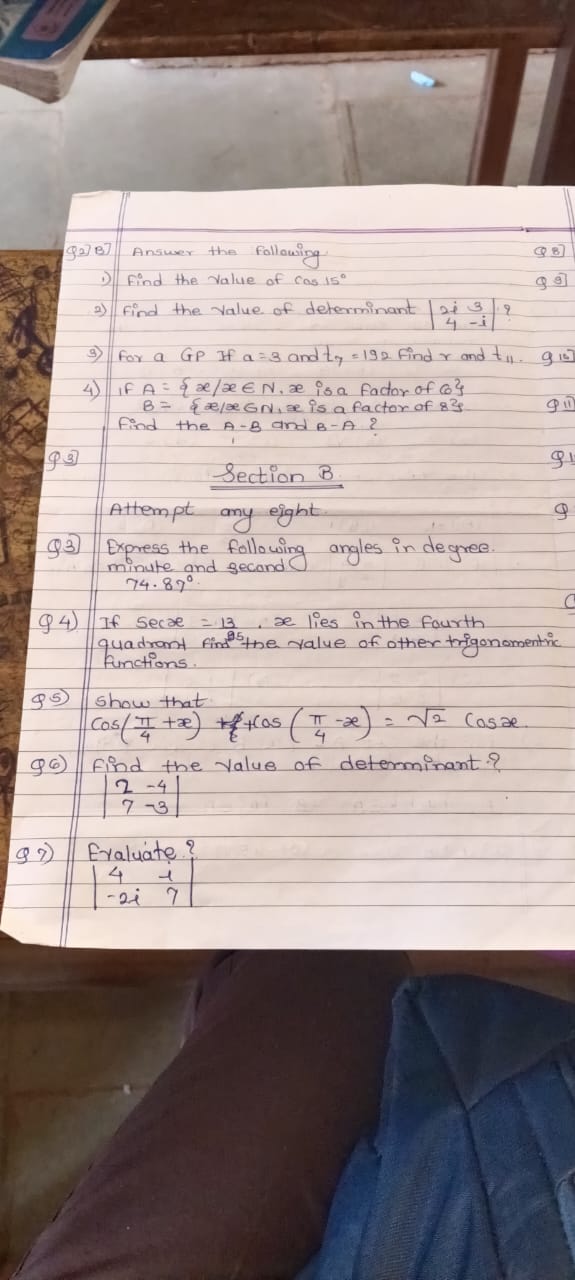 Q2] B] Answer the following Q 8]
1) Find the value of Cos 15° Q 9]
2) Find the value of determinant |2i 3| ?
|4 -i|
3) For a GP If a = 3 and t7 = 192 Find r and t11. Q 10]
4) IF A = {x/x ∈ N, x is a factor of 6}
B = {x/x ∈ N, x is a factor of 8} Q 11]
Find the A-B and B-A ?
Q3]
Section B.
Attempt any eight.
Q3] Express the following angles in degree.
minute and second
74.87°.
Q4) If Secx = 13, x lies in the fourth
quadrant find the value of other trigonomentric
functions.
Q5) Show that
Cos(π/4 + x) + Cos(π/4 - x) = √2 Cosx.
Q6) Find the value of determinant ?
|2 -4|
|7 -3|
Q7) Evaluate ?
|4 i|
|-2i 7|